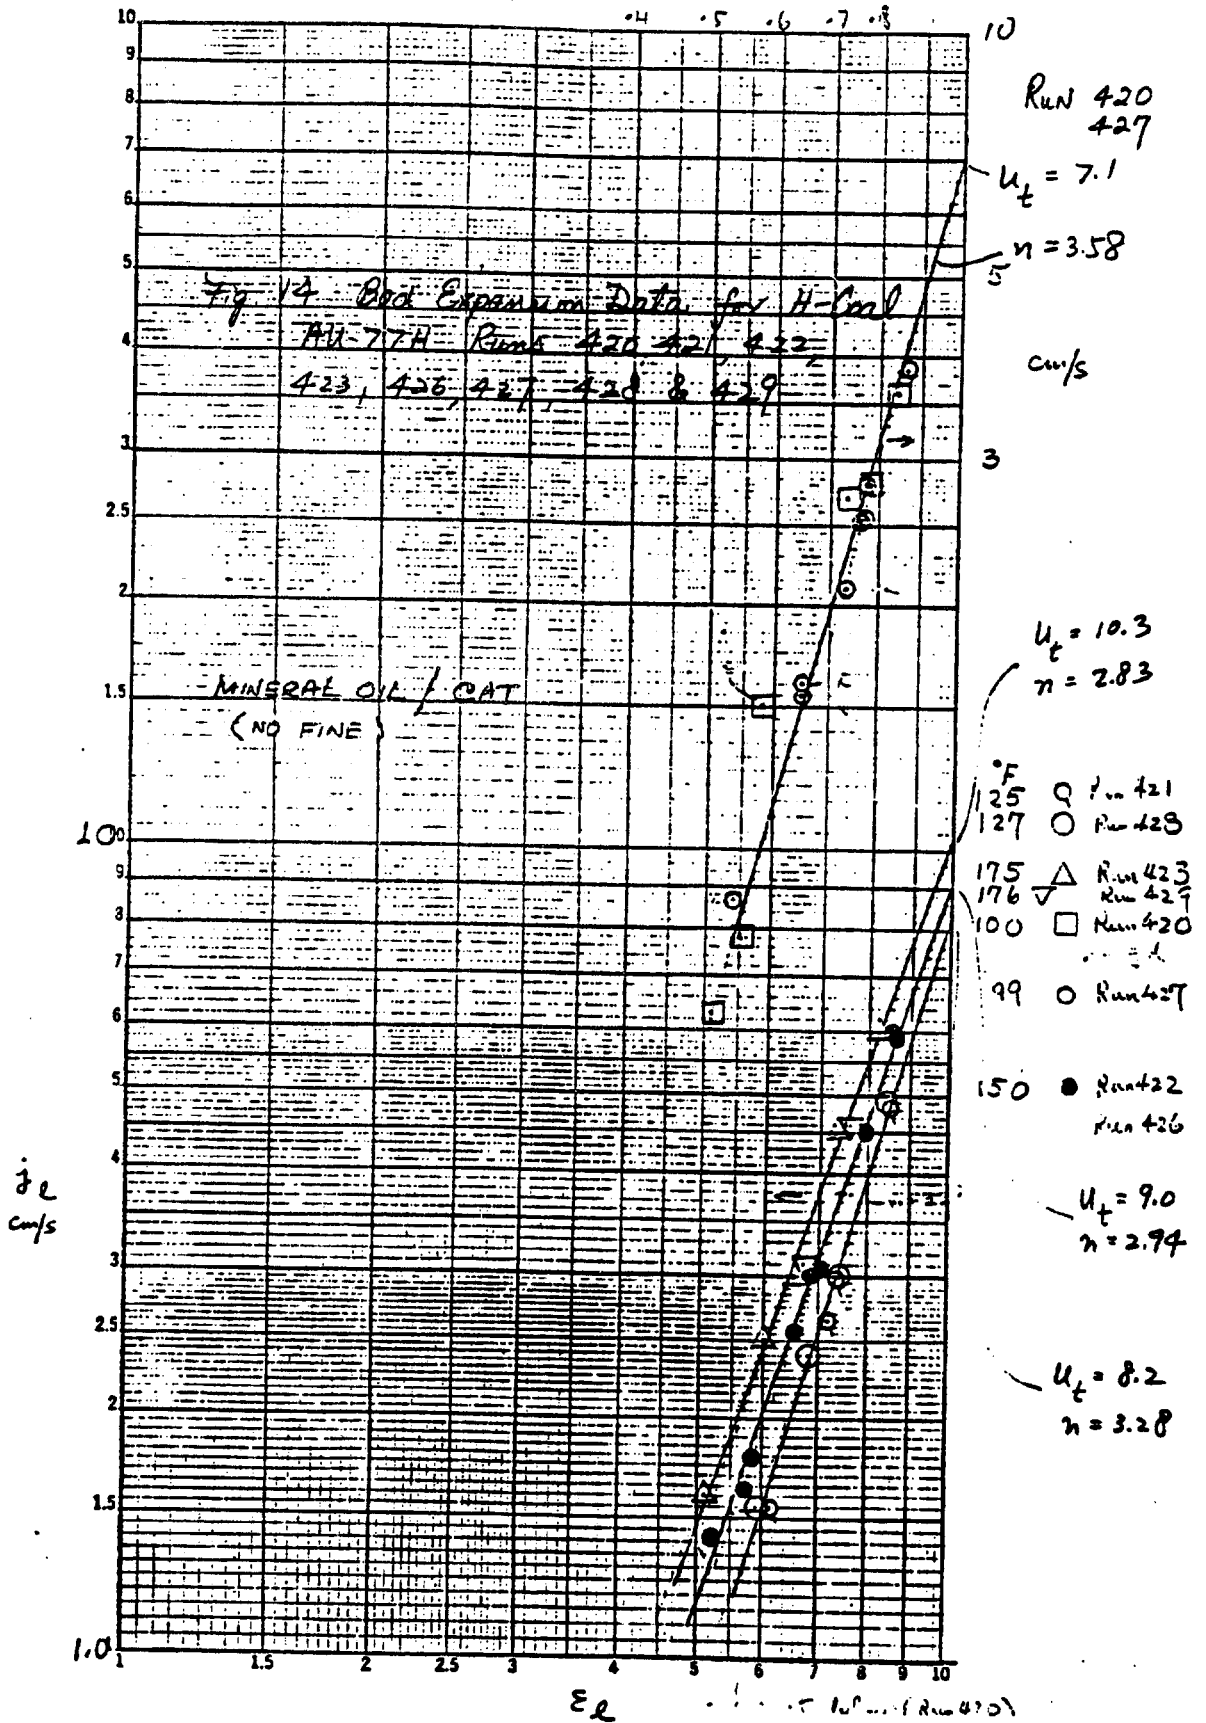 .4 .5 .6 .7 .8
10
9
8
7
6
5
4
3
2.5
2
1.5
10
9
8
7
6
5
4
3
2.5
2
1.5
1.0
10
RUN 420
427
u_t = 7.1
n = 3.58
5
Fig. 14 Bed Expansion Data for H-Coal
AU-77H Runs 420 421, 422,
423, 426, 427, 428 & 429
cm/s
3
MINERAL OIL / CAT
(NO FINE)
u_t = 10.3
n = 2.83
°F
125 Run 421
127 Run 428
175 △ Run 423
176 ▽ Run 429
100 □ Run 420
99 ○ Run 427
150 ● Run 422
Run 426
j_l
cm/s
u_t = 9.0
n = 2.94
u_t = 8.2
n = 3.28
1 1.5 2 2.5 3 4 5 6 7 8 9 10
ε_l
(Run 420)